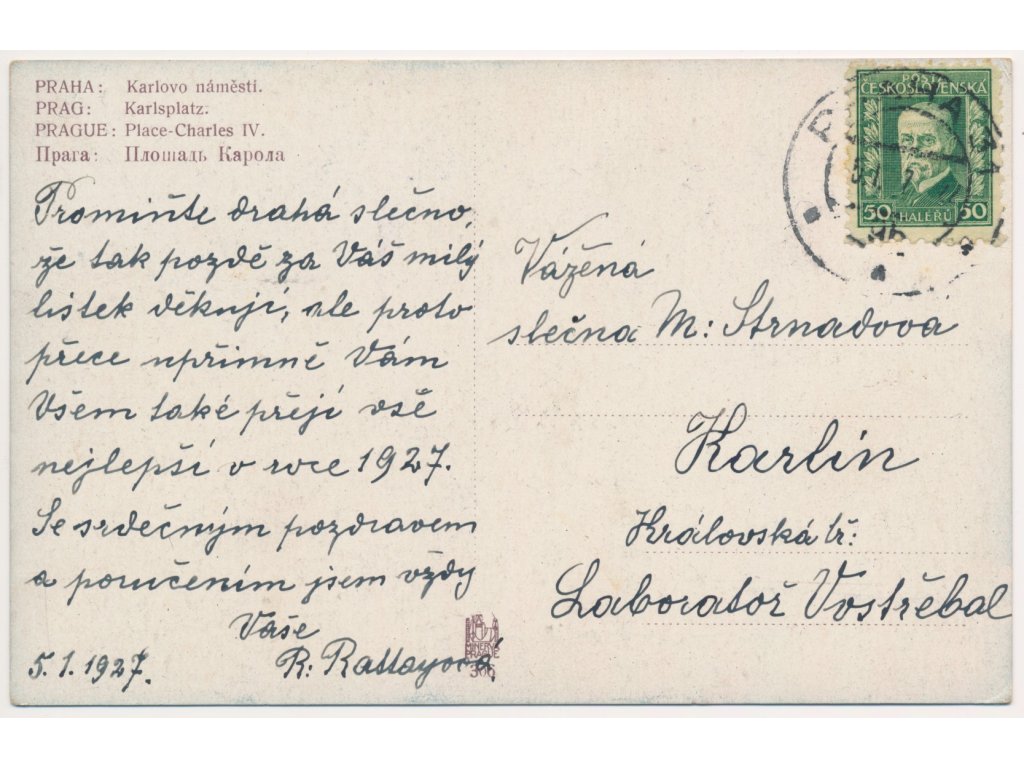 PRAHA: Karlovo náměstí.
PRAG: Karlsplatz.
PRAGUE: Place-Charles IV.
Прага: Площадь Карола
Promiňte drahá slečno,
že tak pozdě za Váš milý
lístek děkuji, ale proto
přece upřimně Vám
Všem také přeji vše
nejlepší v roce 1927.
Se srdečným pozdravem
a poručením jsem vždy
Vaše
R. Rattayová
5.1.1927.
POŠTA
ČESKOSLOVENSKÁ
50 HALÉŘŮ 50
Vážená
slečna M: Strnadová
Karlín
Královská tř:
Laboratoř Vostřebal
MINERVA
PRAGUE
306